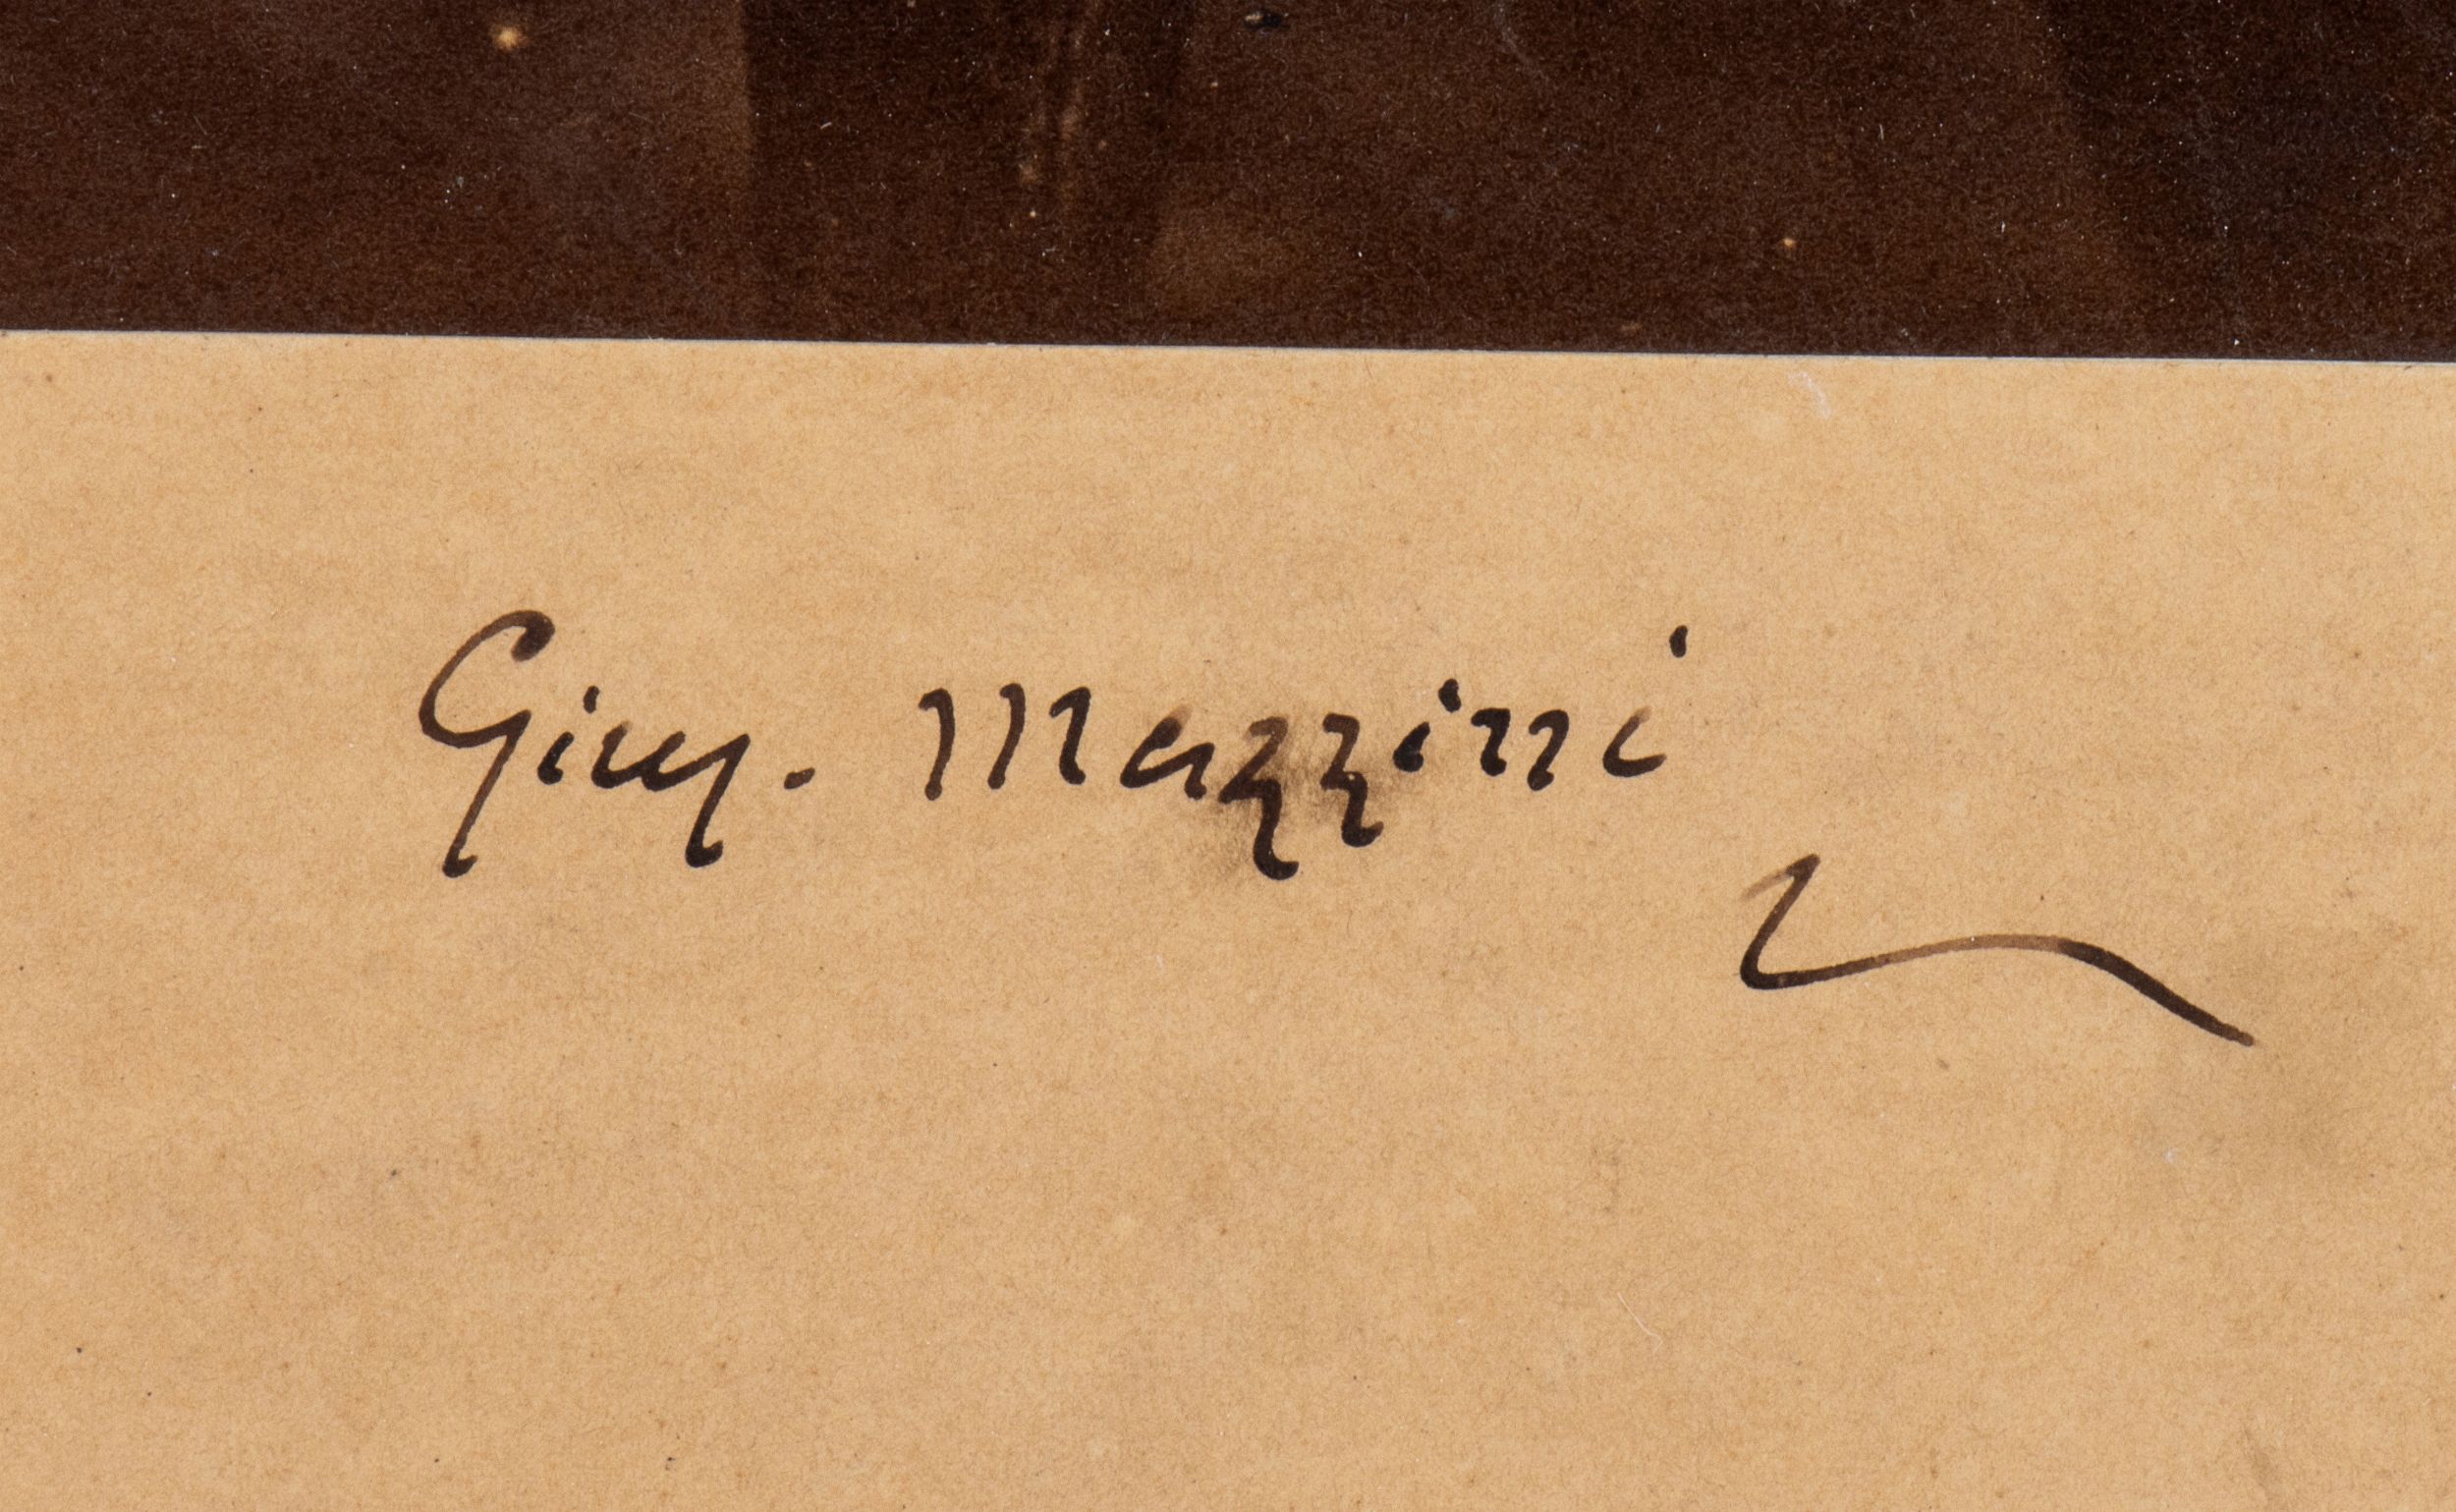 Gius. Mazzini